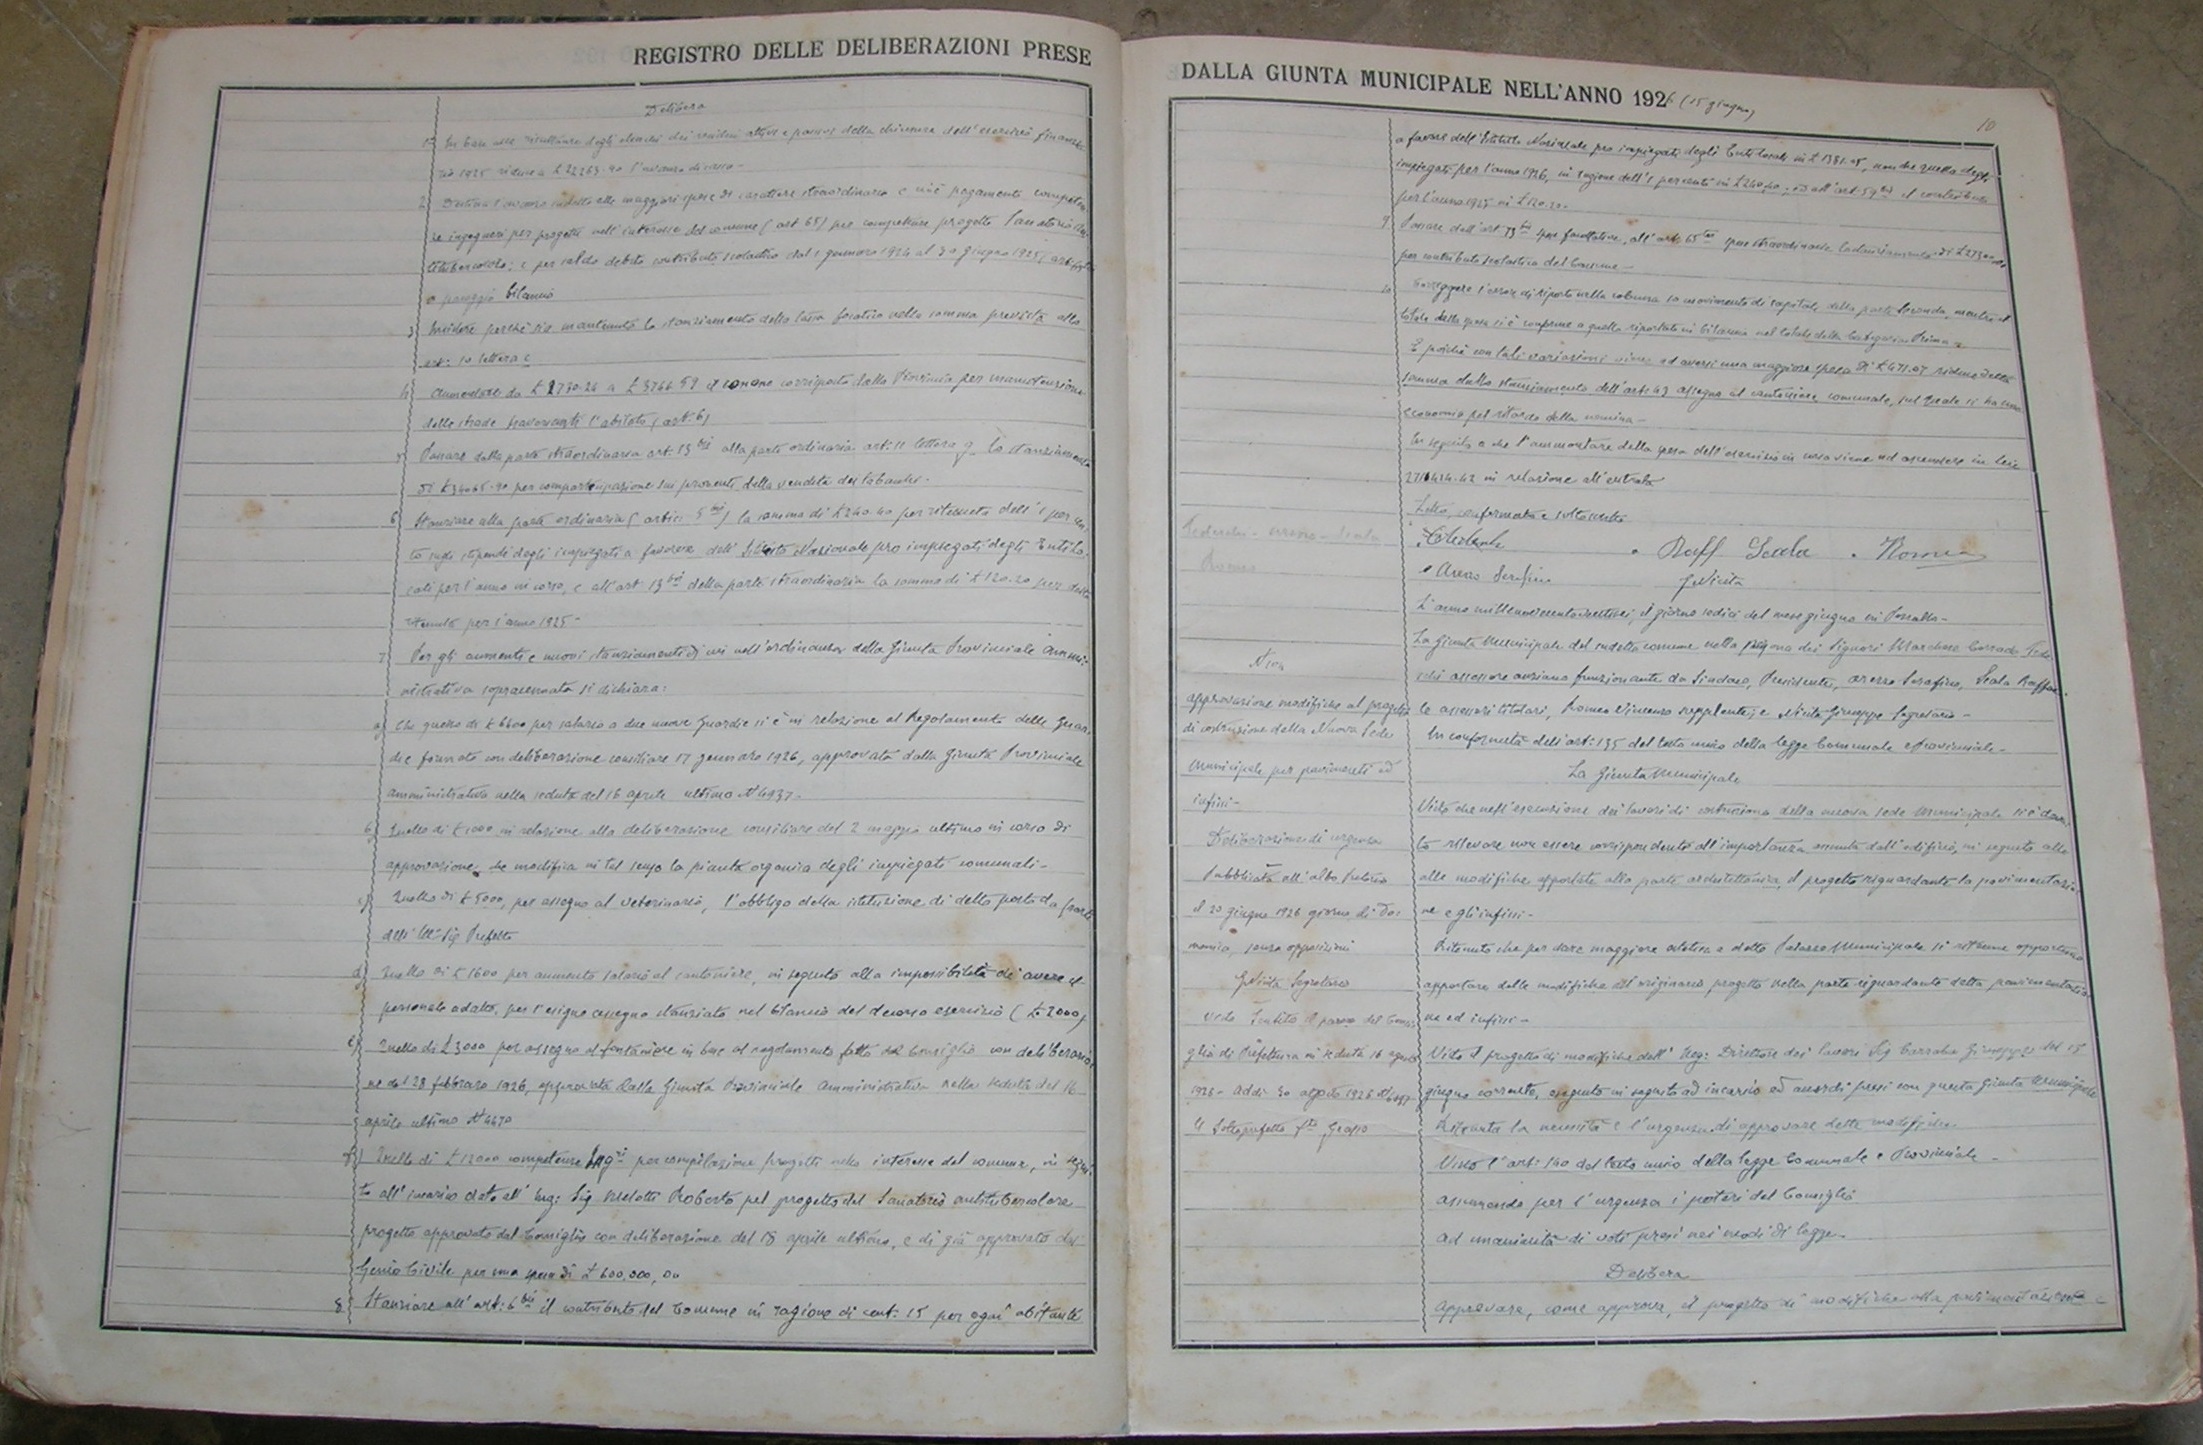 REGISTRO DELLE DELIBERAZIONI PRESE
Delibera
1) In base alle risultanze degli elenchi dei residui attivi e passivi della chiusura dell'esercizio finanzia
rio 1925 ridurre a £ 22263.90 l'avanzo di cassa -
2) l'avanzo alle maggiori spese di carattere straordinario e cioè pagamento competen
ze ingegneri per progetti nell'interesse del comune (art 65) per competenze progetto Sanatorio An
titubercolare; e per saldo debito contributo scolastico dal 1 gennaro 1924 al 30 giugno 1925
a pareggio bilancio
3) Insistere perchè sia mantenuto lo stanziamento della tassa focatico nella somma prevista allo
art: 10 lettera c
4) Aumentare da £ 2730.26 a £ 3766.59 il canone corrisposto dalla Provincia per manutenzione
delle strade traversanti l'abitato (art. 6)
5) Passare dalla parte straordinaria art. 13 bis alla parte ordinaria art: 11 lettera g lo stanziamento
di £ 34065.90 per compartecipazione sui proventi della vendita dei tabacchi -
6) Stanziare alla parte ordinaria (artic: 5 bis) la somma di £ 240.40 per ritenuta dell'1 per cen
to sugli stipendi degli impiegati a favore dell'Istituto Nazionale pro impiegati degli Enti Lo
cali per l'anno in corso, e all'art 13 bis della parte straordinaria la somma di £ 120.20 per detta
ritenuta per l'anno 1925 -
7) Per gli aumenti e nuovi stanziamenti di cui nell'ordinanza della Giunta Provinciale Ammi-
nistrativa sopracennata si dichiara:
a) Che quello di £ 6600 per salario a due nuove Guardie si è in relazione al Regolamento delle Guar
die formato con deliberazione consiliare 17 gennaro 1926, approvata dalla Giunta Provinciale
amministrativa nella seduta del 16 aprile ultimo N 4937 -
b) Quello di £ 1000 in relazione alla deliberazione consiliare del 2 maggio ultimo in corso di
approvazione che modifica in tal senso la pianta organica degli impiegati comunali -
c) Quello di £ 5000, per assegno al veterinario, l'obbligo della istituzione di detto posto da parte
dell'Ill.mo Sig Prefetto
d) Quello di £ 1600 per aumento salario al cantoniere, in seguito alla impossibilità di avere il
personale adatto, per l'esiguo assegno stanziato nel bilancio del decorso esercizio (£ 2000)
e) Quello di £ 3000 per assegno al fontaniere in base al regolamento fatto dal Consiglio con deliberazio
ne del 28 febbraro 1926, approvata dalla Giunta Provinciale Amministrativa nella seduta del 16
aprile ultimo N 4470
f) Quello di £ 12000 competenze Ing.ri per compilazione progetti nello interesse del comune, in segui
to all'incarico dato all'Ing: Sig Roberto pel progetto del Sanatorio antitubercolare
progetto approvato dal Consiglio con deliberazione del 18 aprile ultimo, e di già approvato dal
Genio Civile per una spesa di £ 600.000,00
8) Stanziare all'art: 6 bis il contributo del Comune in ragione di cent: 15 per ogni abitante
DALLA GIUNTA MUNICIPALE NELL'ANNO 1926 (15 giugno)
10
a favore dell'Istituto Nazionale pro impiegati degli Enti Locali in £ 1381.05, nonchè quello degli
impiegati per l'anno 1926, in ragione dell'1 per cento in £ 240,40; ed all'art: 59 bis il contributo
per l'anno 1925 in £ 120.20 -
9) Passare dall'art 73 bis spese facoltative, all'art: 65 ter spese straordinarie lo stanziamento di £
per contributo scolastico del Comune -
10) Correggere l'error di riporto nella colonna 10 movimento di capitale della parte seconda, mentre il
totale della spesa si è conforme a quello riportato in bilancio nel totale della Categoria Prima -
E poichè con tali variazioni viene ad aversi una maggiore spesa di £ 471.07 ridurre della
somma dallo stanziamento dell'art: 43 assegno al cantoniere comunale, sul quale si ha una
economia pel ritardo della nomina -
In seguito a che l'ammontare della spesa dell'esercizio in corso viene ad ascendere in lire
in relazione all'entrata
Letto, confermato e sottoscritto
Tedeschi - Arezzo - Scala
Romeo
C. Tedeschi
Raff Scala
Romeo
Arezzo Serafino
G. Nicita
L'anno millenovecentoventisei, il giorno sedici del mese giugno in
La Giunta Municipale del suddetto comune nella persona dei Signori Marchese Corrado Tede
schi assessore anziano funzionante da Sindaco, Presidente, Arezzo Serafino, Scala Raffae
le assessori titolari, Romeo Vincenzo supplente; e Nicita Giuseppe Segretario -
In conformità dell'art: 135 del testo unico della legge Comunale e Provinciale -
La Giunta Municipale
Visto che nell'esecuzione dei lavori di costruzione della nuova sede Municipale si è dovu
to rilevare non essere corrispondente all'importanza assunta dall'edificio, in seguito alle
alle modifiche apportate alla parte architettonica, il progetto riguardante la pavimentazio
ne e gli infissi -
Ritenuto che per dare maggiore estetica a detto Palazzo Municipale si ritiene opportuno
apportare delle modifiche all'originario progetto nella parte riguardante detta pavimentazio
ne ed infissi -
Visto il progetto di modifiche dell'Ing: Direttore dei lavori Sig Giuseppe del 15
giugno corrente, eseguito in seguito ad incarico ed accordi presi con questa Giunta Municipale
Ritenuta la necessità e l'urgenza di approvare dette modifiche
Visto l'art: 140 del testo unico della legge Comunale e Provinciale -
assumendo per l'urgenza i poteri del Consiglio
ad unanimità di voti presi nei modi di legge -
Delibera
Approvare, come approva, il progetto di modifiche alla pavimentazione e
approvazione modifiche al progetto
di costruzione della Nuova Sede
Municipale per pavimenti ed
infissi -
Deliberazione di urgenza
Pubblicata all'albo Pretorio
il 20 giugno 1926 giorno di Do-
menica, senza opposizioni
G. Nicita Segretario
Visto Sentito il parere del Consi
glio di Prefettura in seduta 16 agosto
1926 - Addì 30 agosto 1926
Il Sottoprefetto f.to Grasso